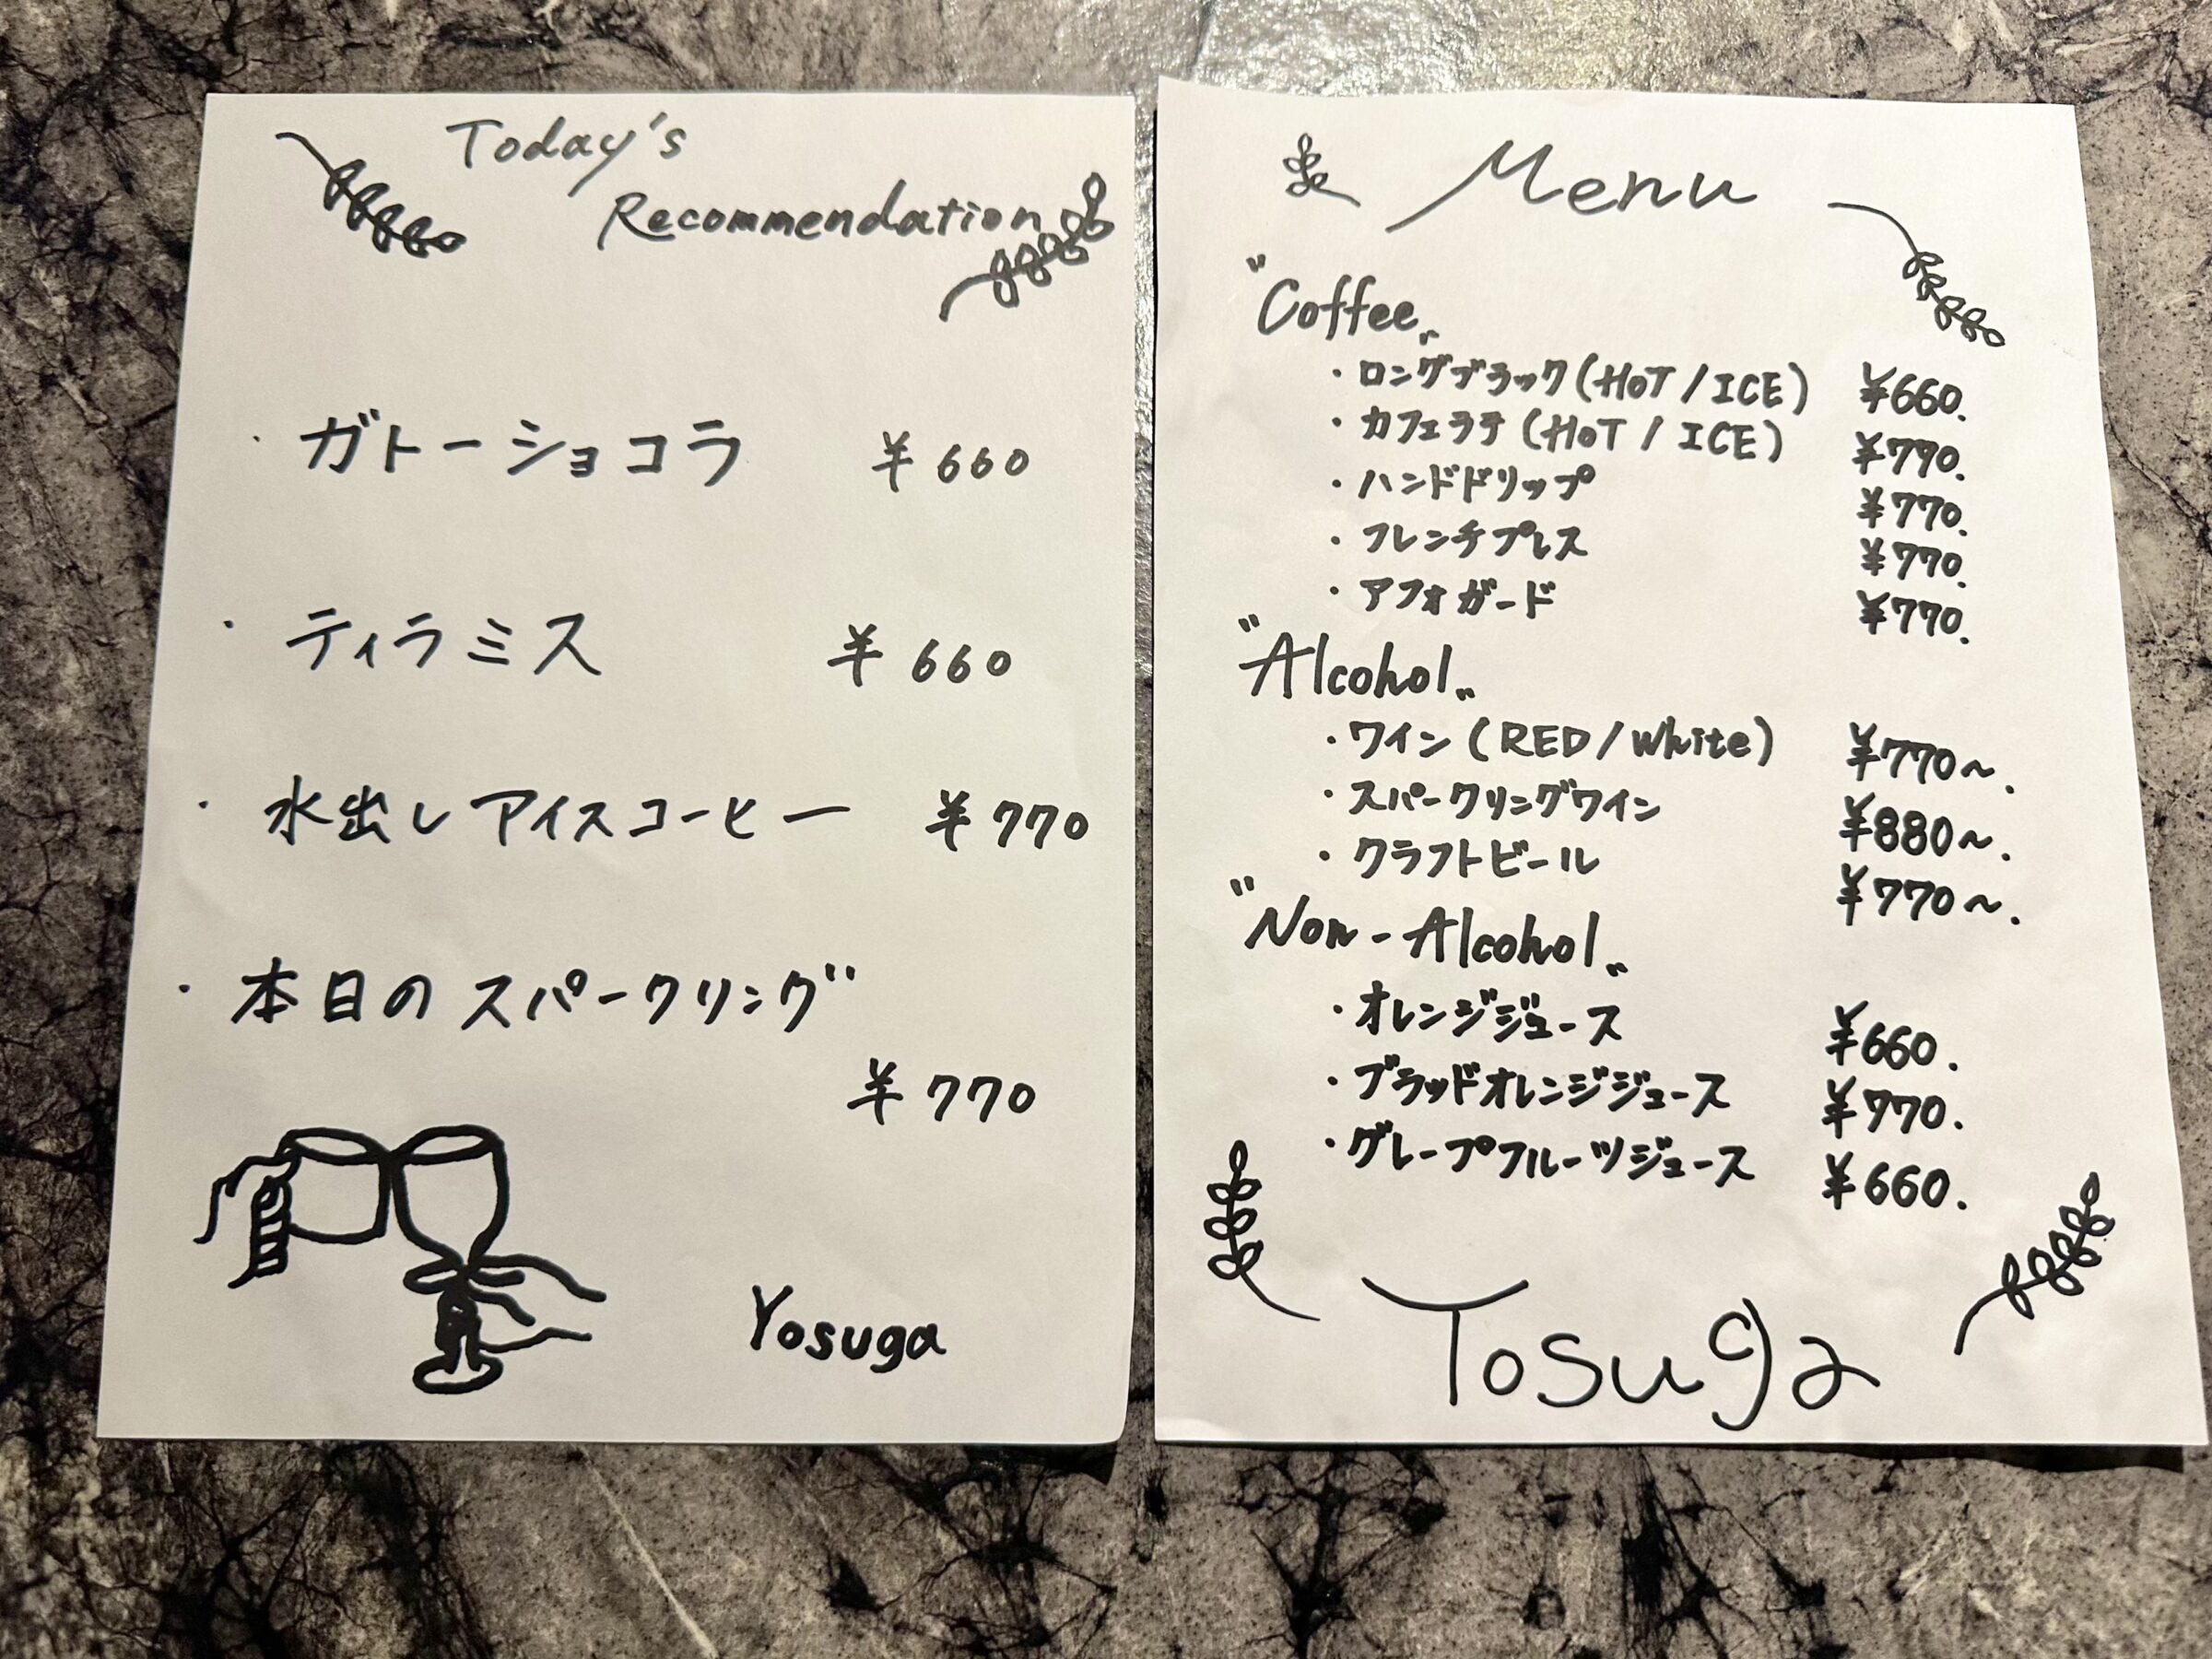 Today's
Recommendation
・ガトーショコラ ¥660
・ティラミス ¥660
・水出しアイスコーヒー ¥770
・本日のスパークリング
¥770
Yosuga
Menu
"Coffee"
・ロングブラック(HOT/ICE) ¥660.
・カフェラテ(HOT/ICE) ¥790.
・ハンドドリップ ¥770.
・フレンチプレス ¥770.
・アフォガード ¥770.
"Alcohol"
・ワイン(RED/White) ¥770〜.
・スパークリングワイン ¥880〜.
・クラフトビール ¥770〜.
"Non-Alcohol"
・オレンジジュース ¥660.
・ブラッドオレンジジュース ¥770.
・グレープフルーツジュース ¥660.
Yosuga